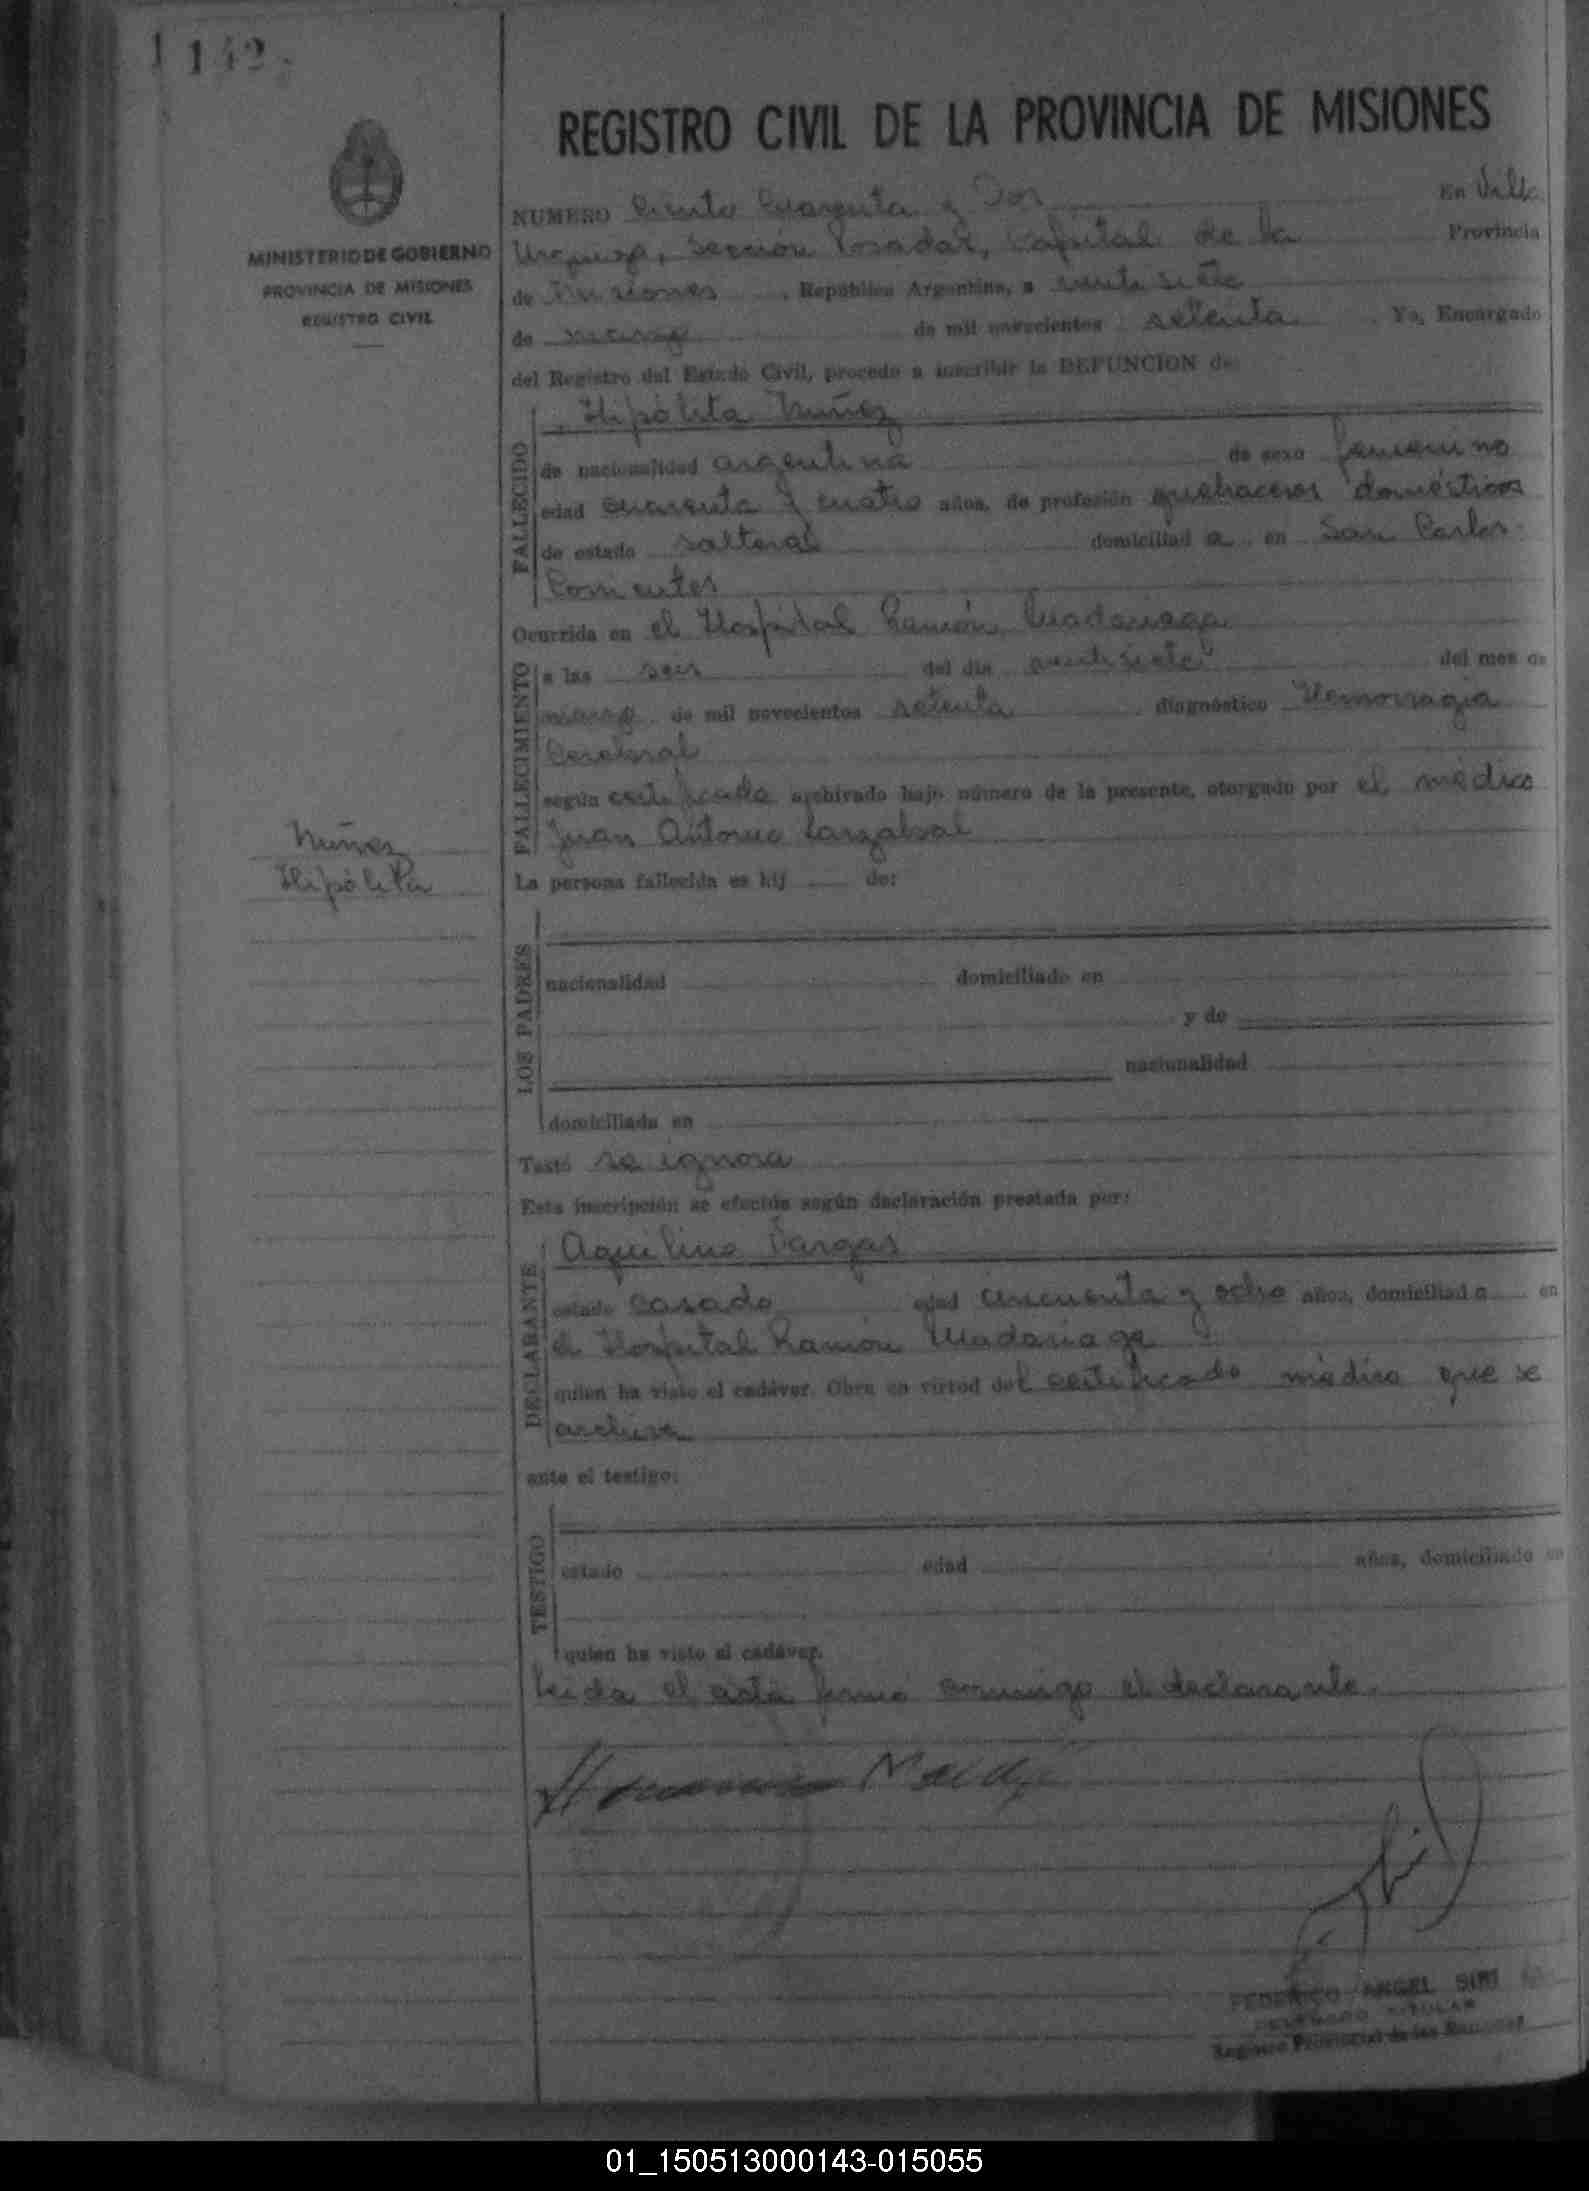 142
REGISTRO CIVIL DE LA PROVINCIA DE MISIONES
MINISTERIO DE GOBIERNO
PROVINCIA DE MISIONES
REGISTRO CIVIL
NUMERO Ciento Cuarenta y Dos En Villa
Urquiza, Sección Posadas, Capital de la Provincia
de Misiones, República Argentina, a veintisiete
de marzo de mil novecientos setenta. Yo, Encargado
del Registro del Estado Civil, procedo a inscribir la DEFUNCION de:
FALLECIDO
Hipólita Nuñez
de nacionalidad argentina de sexo femenino
edad cuarenta y cuatro años, de profesión quehaceres domésticos
de estado soltera domiciliad a en San Carlos
Corrientes
Ocurrida en el Hospital Ramón Madariaga
FALLECIMIENTO
a las seis del día veintisiete del mes de
marzo de mil novecientos setenta diagnóstico Hemorragia
Cerebral
según certificado archivado bajo número de la presente, otorgado por el médico
Juan Antonio
Nuñez
Hipólita
La persona fallecida es hij de:
LOS PADRES
nacionalidad domiciliado en
y de
nacionalidad
domiciliada en
Testó se ignora
Esta inscripción se efectúa según declaración prestada por:
DECLARANTE
Aquilino Vargas
estado casado edad cincuenta y ocho años, domiciliad o en
el Hospital Ramón Madariaga
quien ha visto el cadáver. Obra en virtud del certificado médico que se
archiva
ante el testigo:
TESTIGO
estado edad años, domiciliado en
quien ha visto el cadáver.
Leida el acta firmó conmigo el declarante.
FEDERICO ANGEL SIRI
DELEGADO TITULAR
Registro Provincial de las Personas
01_150513000143-015055